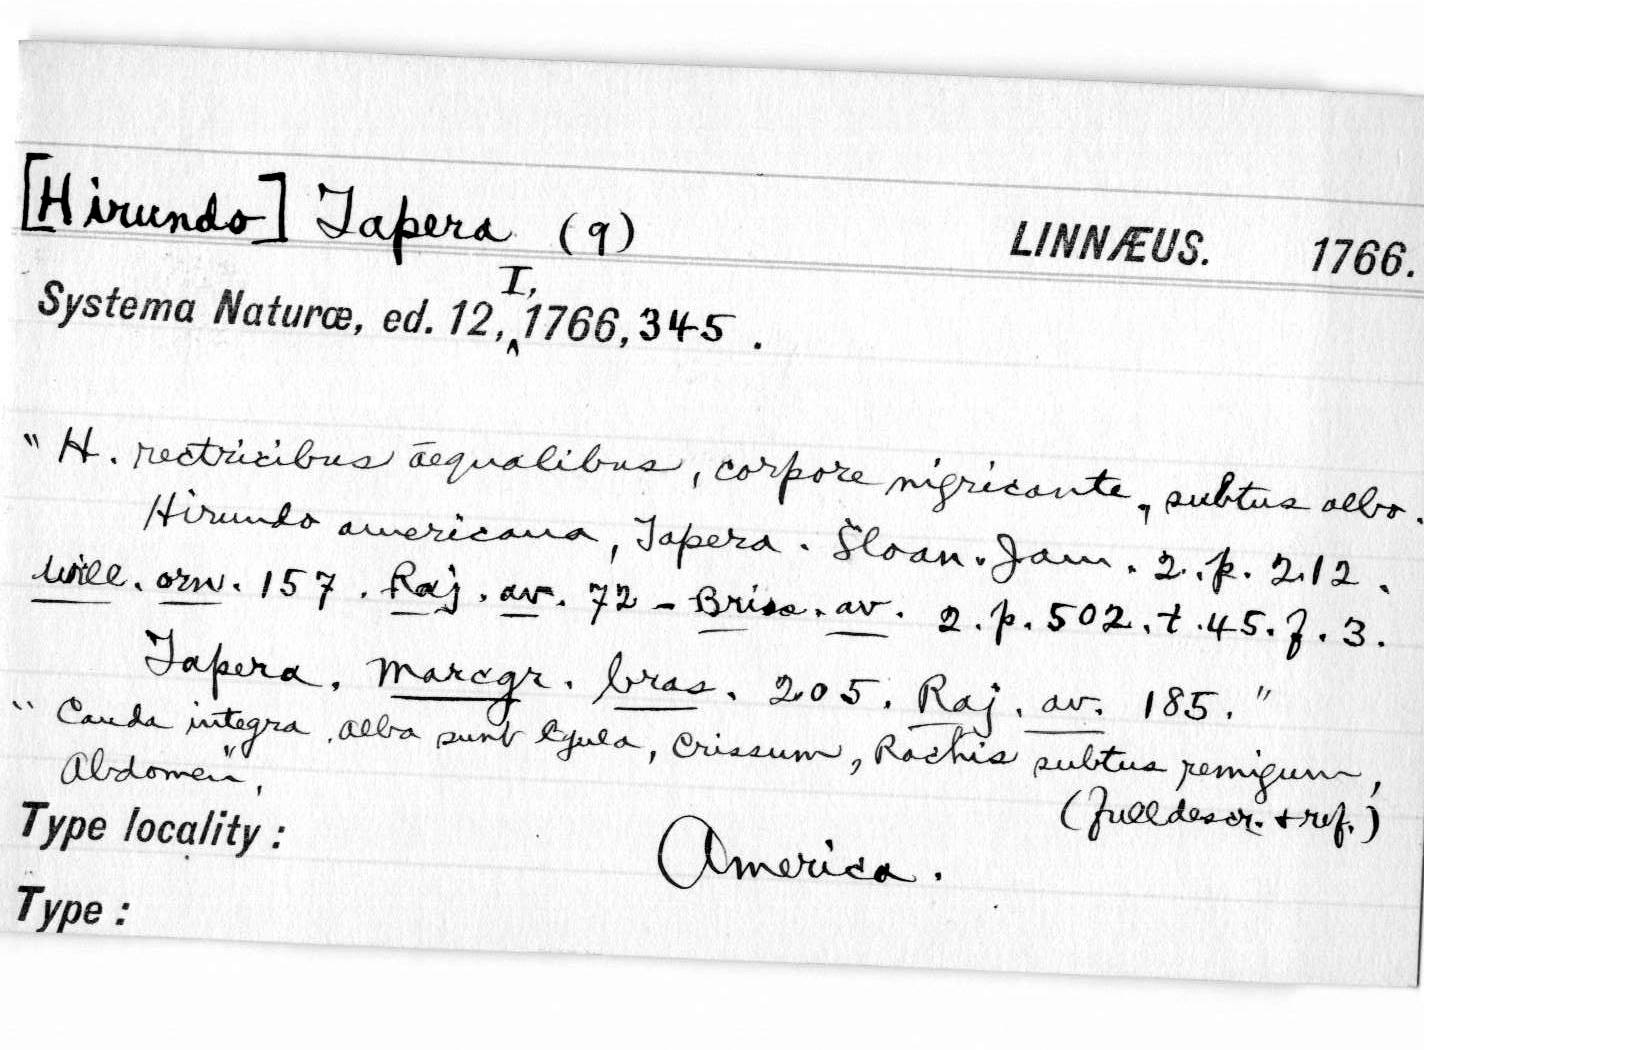 [Hirundo] Tapera (9) LINNÆUS. 1766.
Systema Naturæ, ed. 12, I, 1766, 345.
"H. rectricibus aequalibus, corpore nigricante, subtus albo.
Hirundo americana, Tapera. Sloan. Jam. 2. p. 212.
Will. orn. 157. Raj. av. 72 - Briss. av. 2. p. 502. t. 45. f. 3.
Tapera. marcgr. bras. 205. Raj. av. 185."
"Cauda integra. alba sunt Gula, Crissum, Rachis subtus remigum,
Abdomen",
(full descr. + ref.)
Type locality: America.
Type: